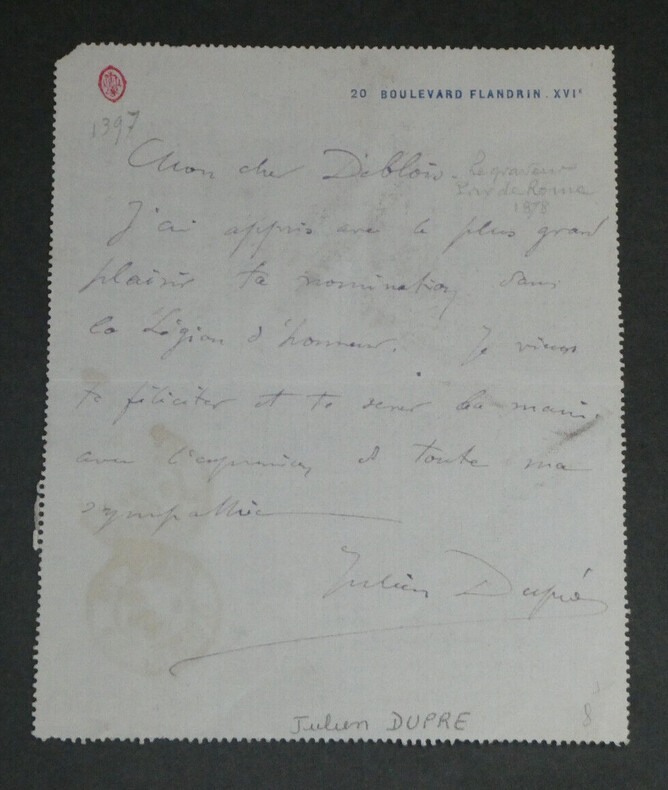 20 BOULEVARD FLANDRIN. XVIe
1397
Mon cher Deblois.
le graveur
Prix de Rome
1878
J'ai appris avec le plus grand
plaisir ta nomination dans
la Légion d'honneur. Je viens
te féliciter et te serrer la main
avec l'expression de toute ma
sympathie
Julien Dupré
Julien DUPRE
8